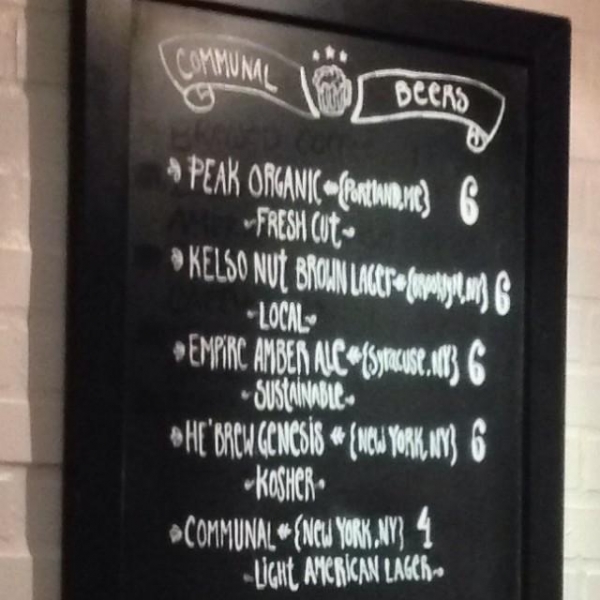 COMMUNAL BEERS
PEAK ORGANIC {PORTLAND, ME} 6
~FRESH CUT~
KELSO NUT BROWN LAGER {BROOKLYN, NY} 6
~LOCAL~
EMPIRE AMBER ALE {SYRACUSE, NY} 6
~SUSTAINABLE~
HE'BREW GENESIS {NEW YORK, NY} 6
~KOSHER~
COMMUNAL {NEW YORK, NY} 4
~LIGHT AMERICAN LAGER~